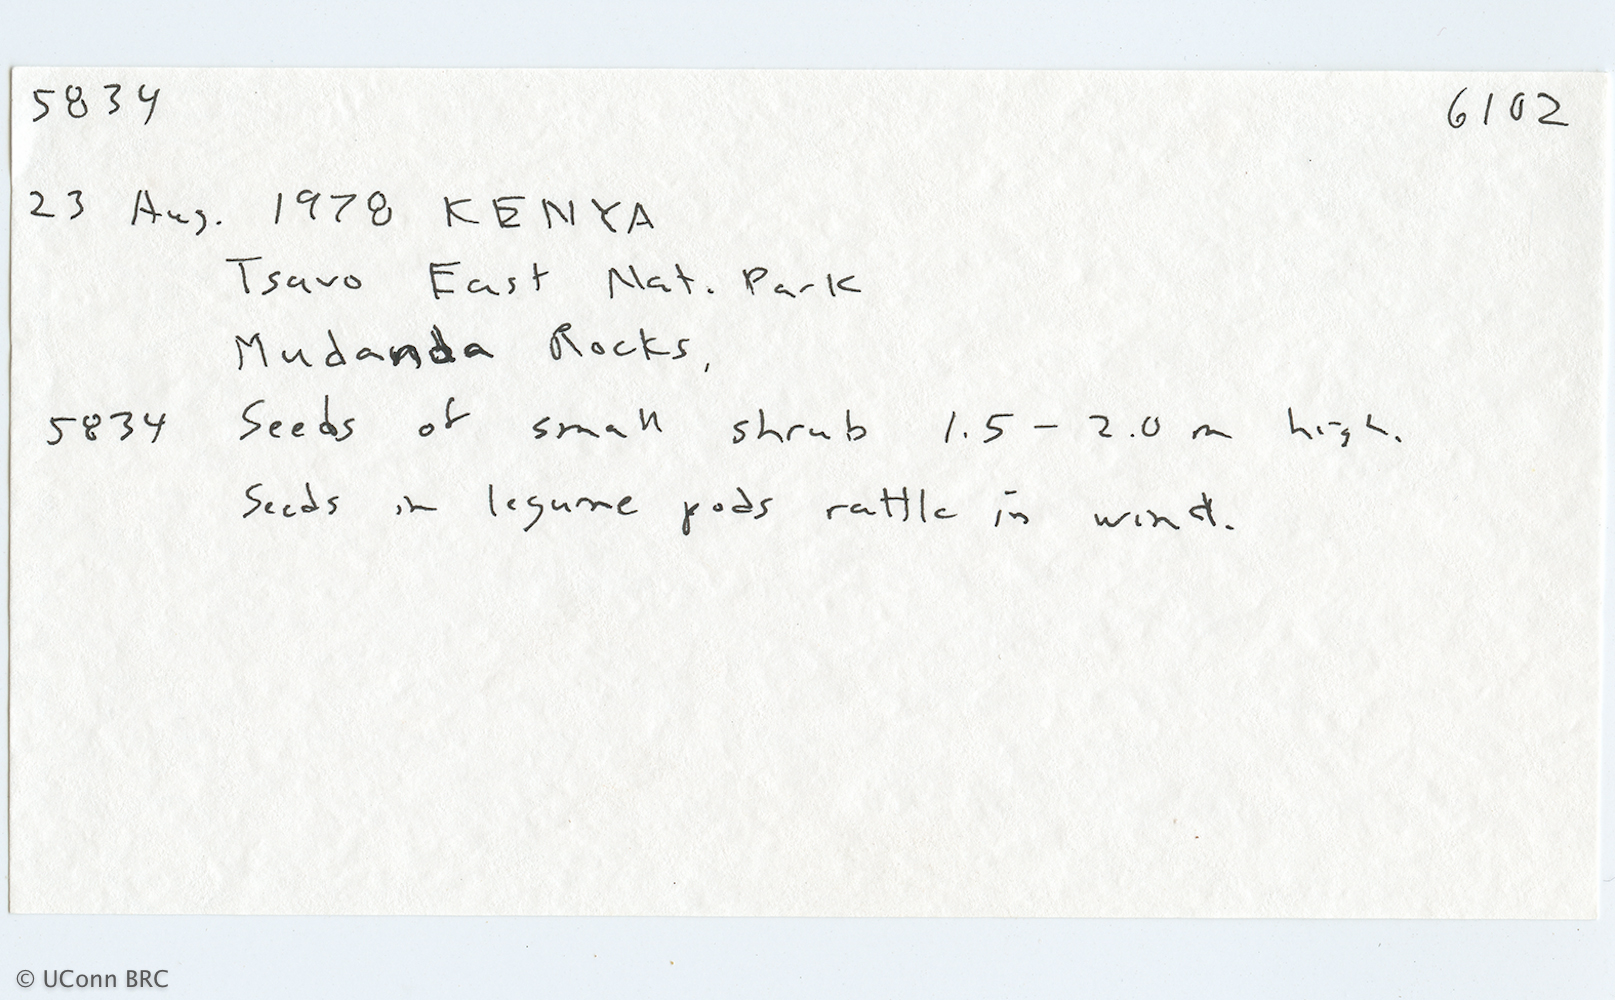 5834 6102
23 Aug. 1978 KENYA
Tsavo East Nat. Park
Mudanda Rocks,
5834 Seeds of small shrub 1.5 - 2.0 m high.
Seeds in legume pods rattle in wind.
© UConn BRC